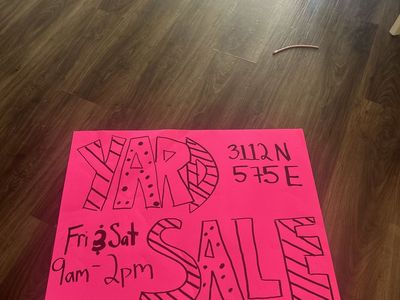 YARD
3112 N
575 E
Fri & Sat
9am - 2pm
SALE